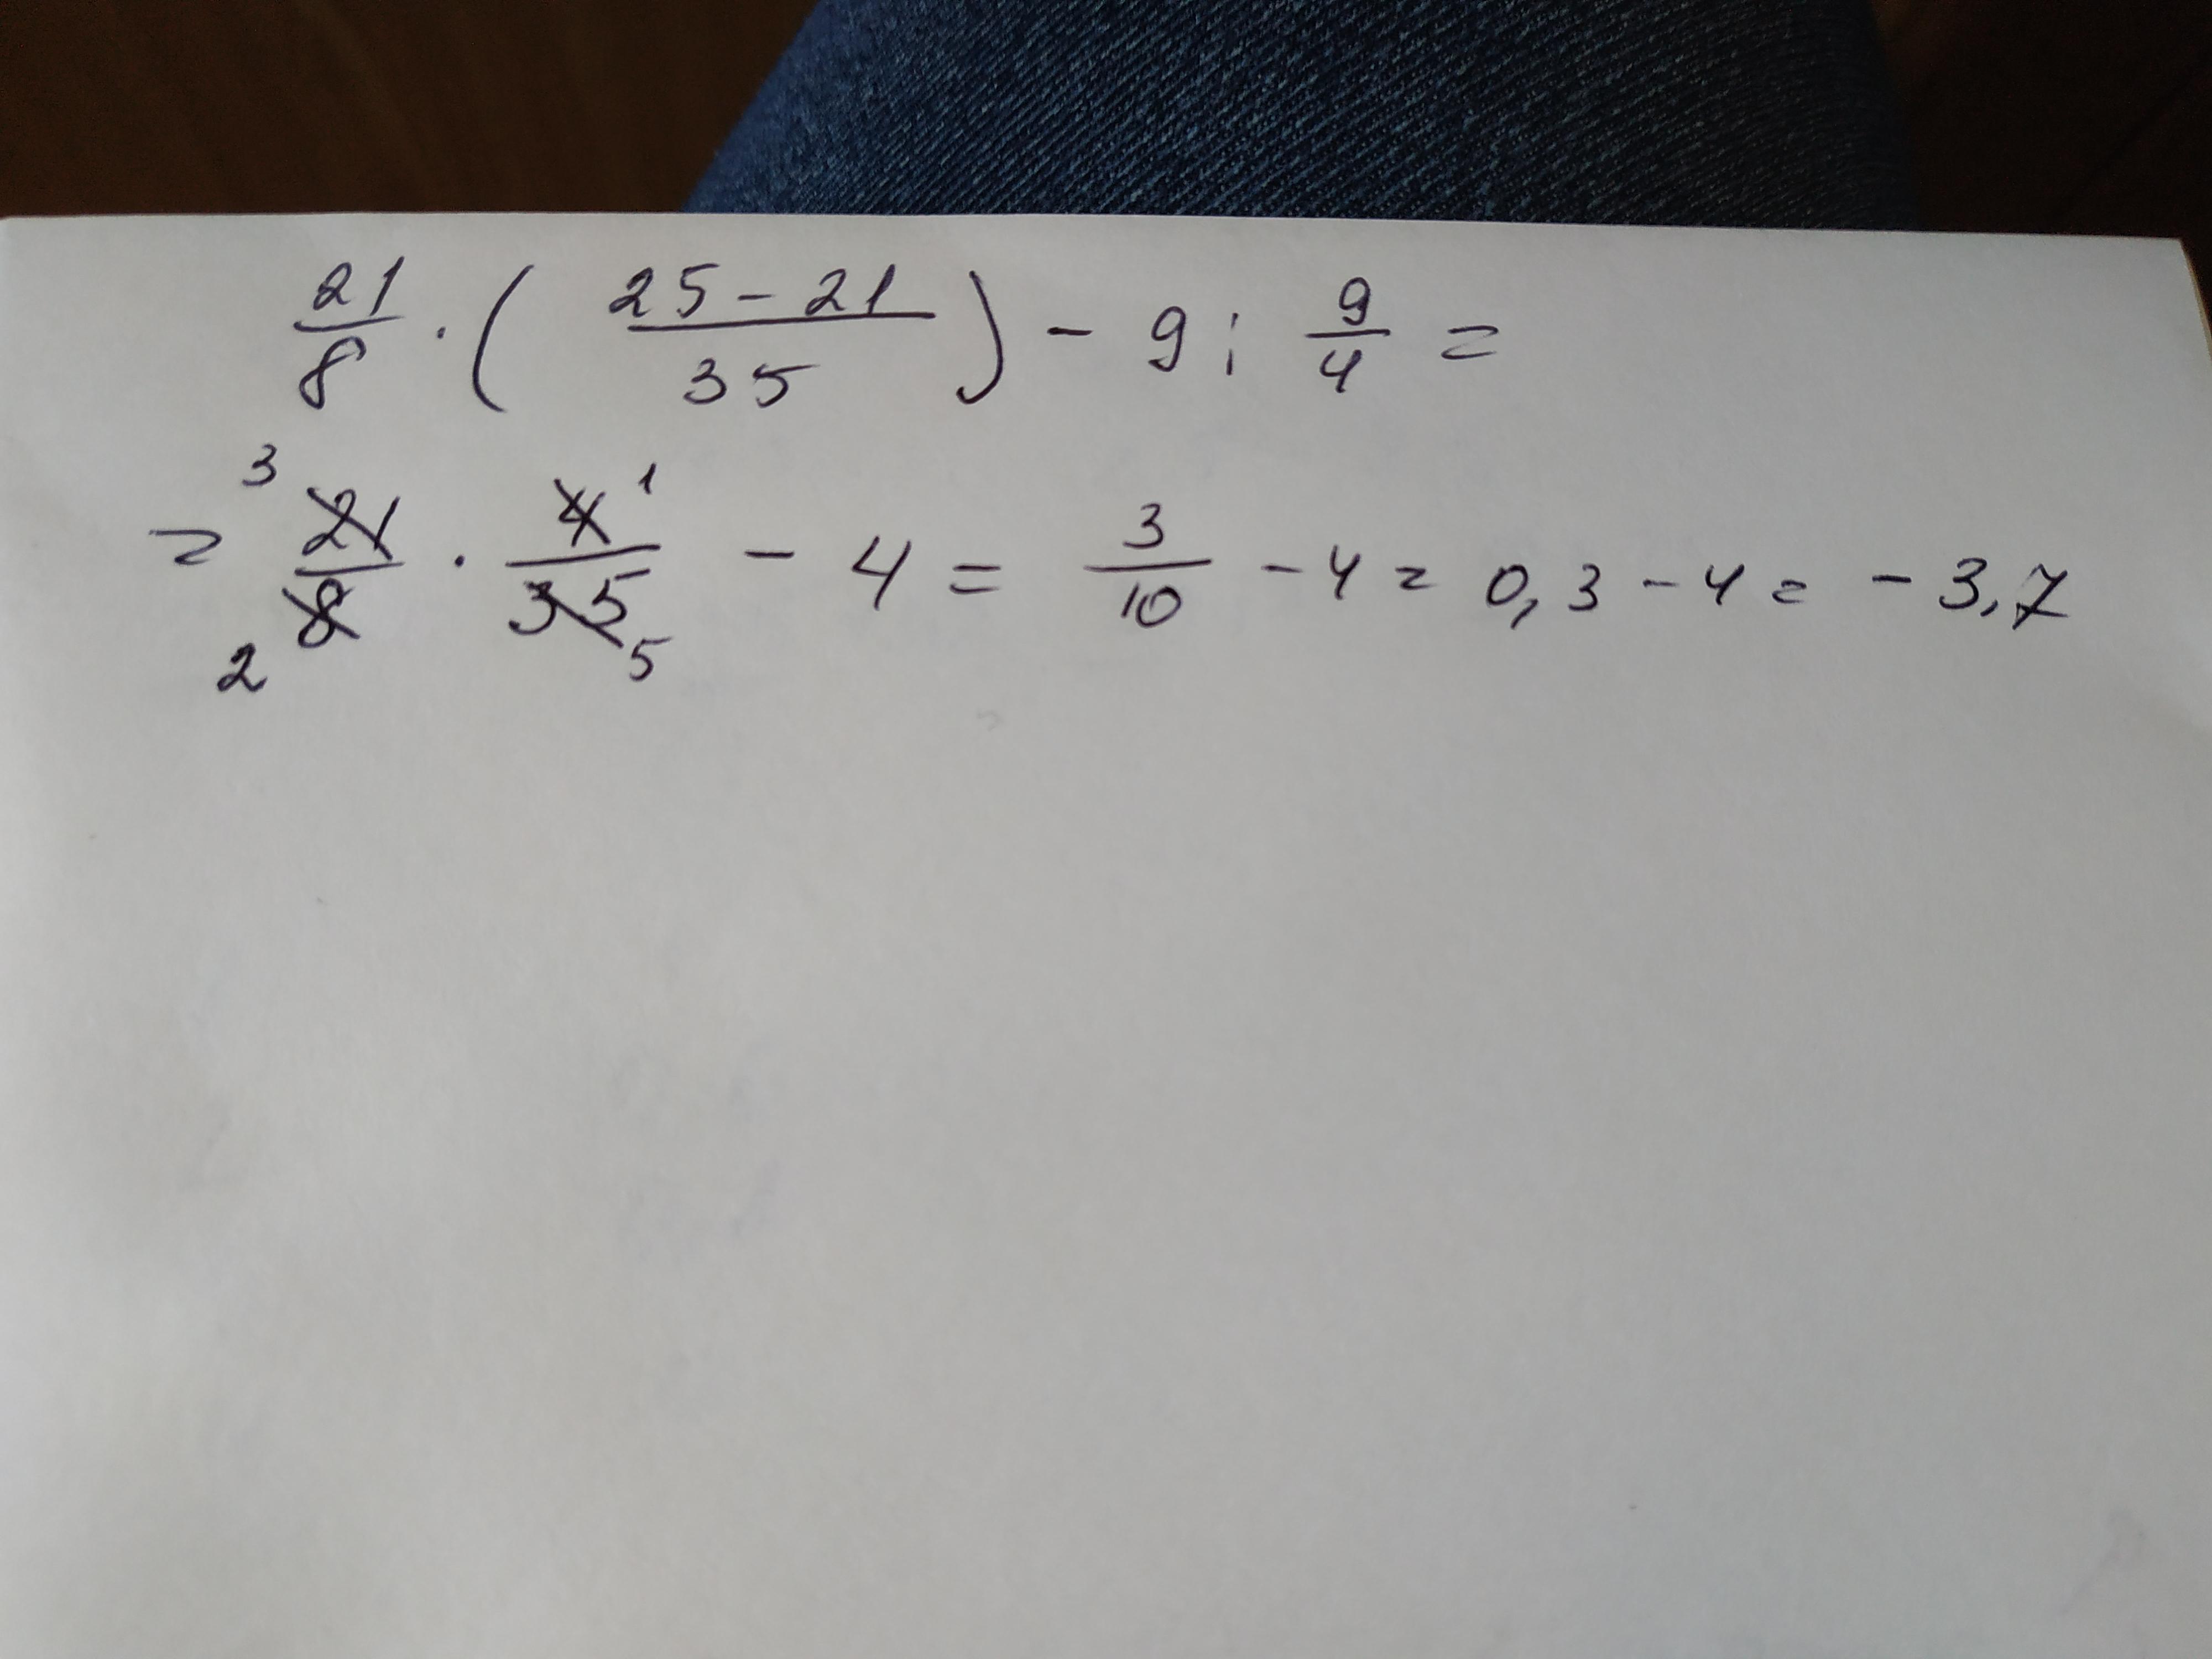 21/8 · ( (25 - 21)/35 ) - 9 : 9/4 =
= 3 21/8 2 · 4 1/35 5 - 4 = 3/10 - 4 = 0,3 - 4 = - 3,7